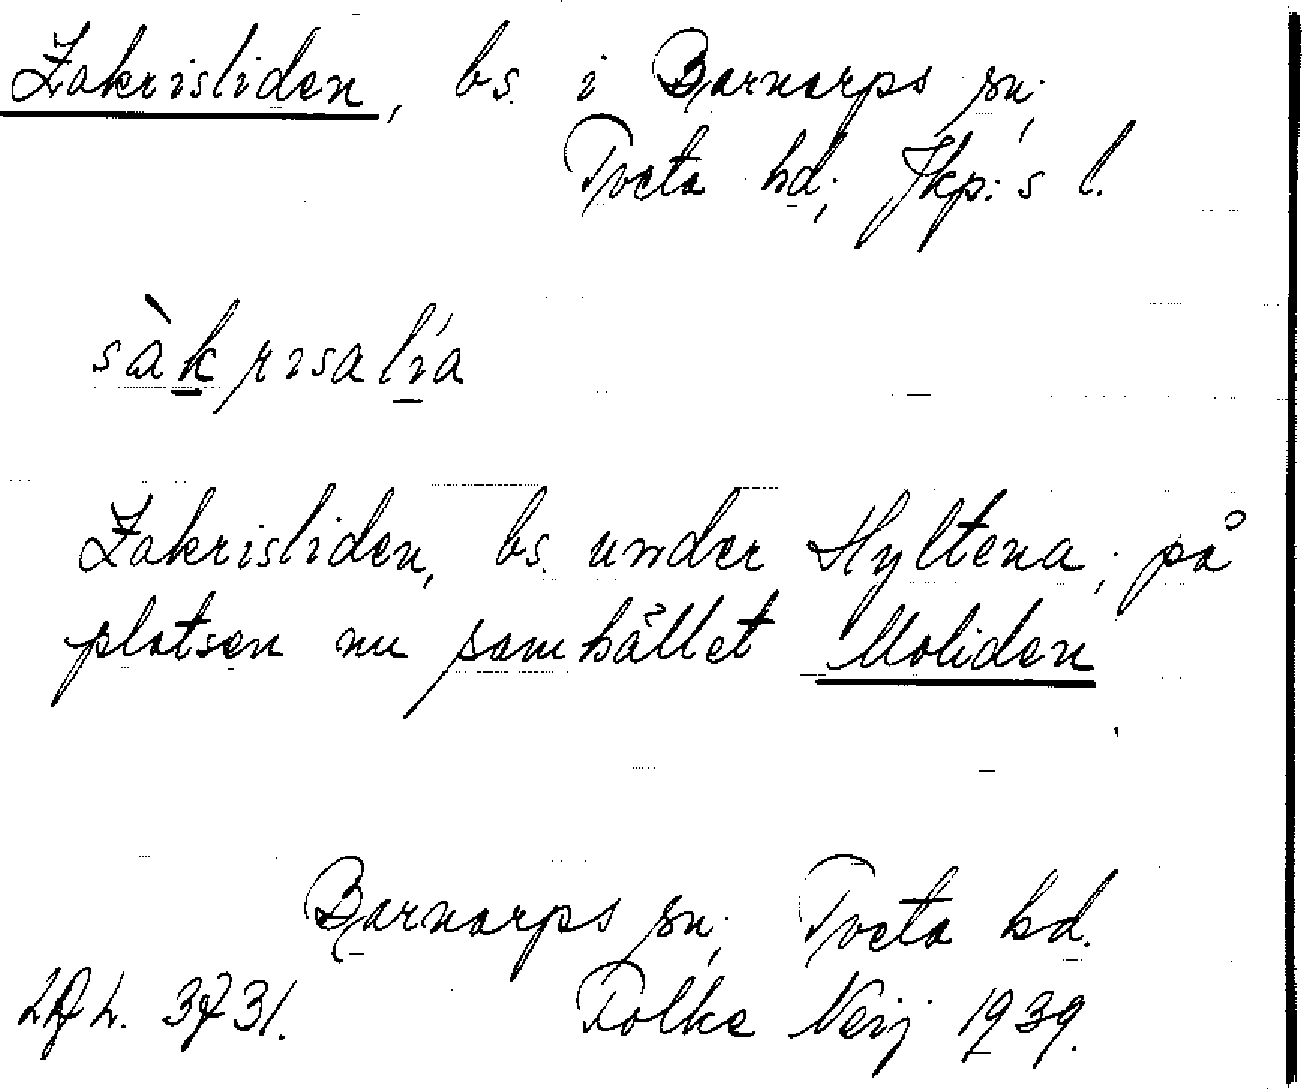 Zakrisliden, bs. i Barnarps sn;
Tveta hd; Jkp:s l.
sàkrisalia
Zakrisliden, bs. under Hyltena; på
platsen nu samhället Moliden
Barnarps sn; Tveta hd.
3731. Folke Neij 1939.